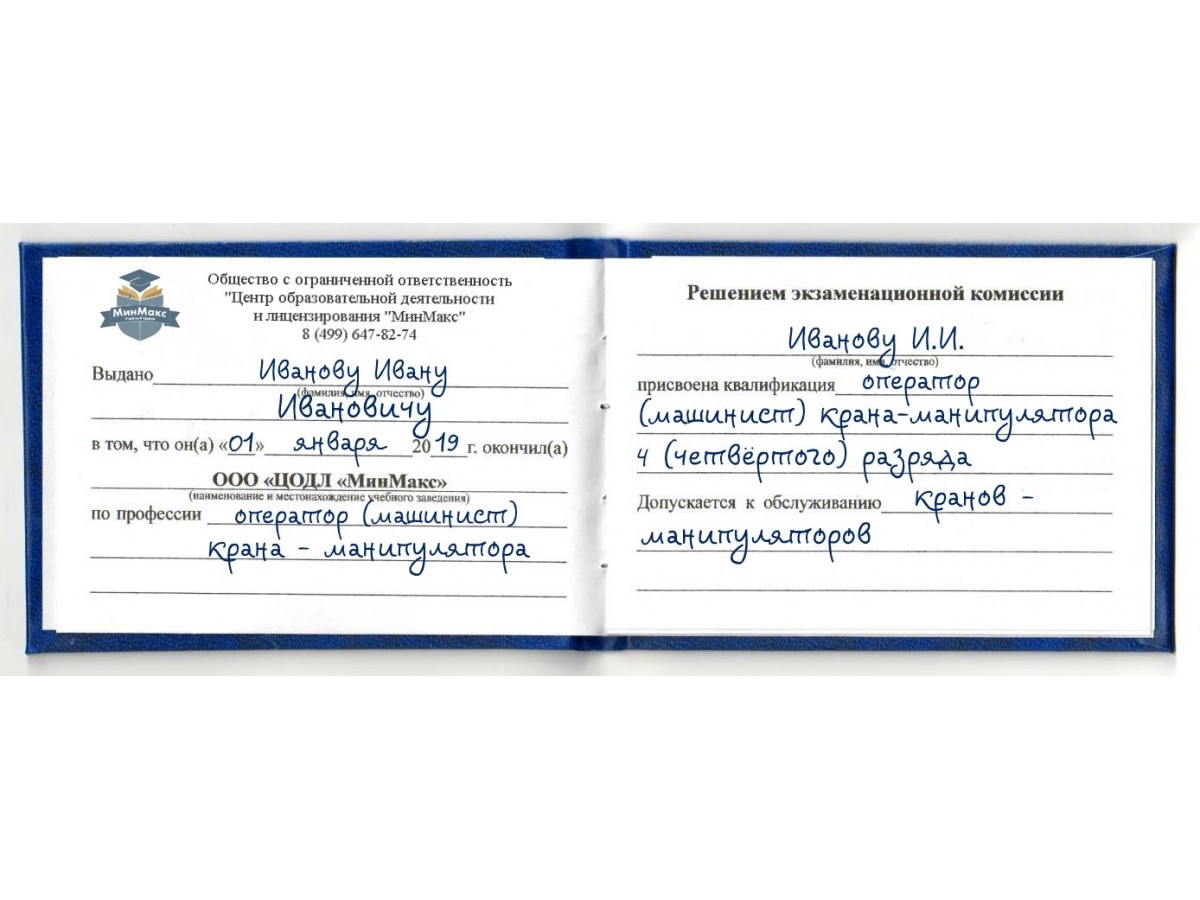 МинМакс
Общество с ограниченной ответственность
"Центр образовательной деятельности
и лицензирования "МинМакс"
8 (499) 647-82-74
Выдано Иванову Ивану
(фамилия, имя, отчество)
Ивановичу
в том, что он(а) «01» января 2019 г. окончил(а)
ООО «ЦОДЛ «МинМакс»
(наименование и местонахождение учебного заведения)
по профессии оператор (машинист)
крана - манипулятора
Решением экзаменационной комиссии
Иванову И.И.
(фамилия, имя, отчество)
присвоена квалификация оператор
(машинист) крана-манипулятора
4 (четвёртого) разряда
Допускается к обслуживанию кранов -
манипуляторов